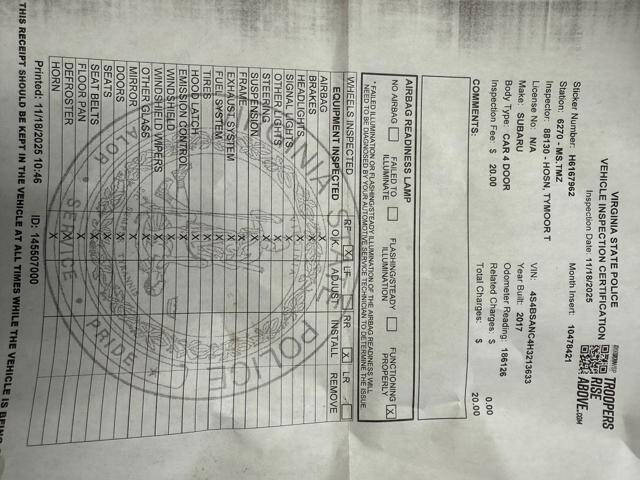 VIRGINIA STATE POLICE
VEHICLE INSPECTION CERTIFICATION
Inspection Date: 11/18/2025
TROOPERS
RISE
ABOVE.COM
Sticker Number: H6167962 Month Insert: 10478421
Station: 6270 - MS.TMZ
Inspector: 88130 - HOSN, TYMOOR T
License No: N/A VIN: 4S4BSANC4H3213633
Make: SUBARU Year Built: 2017
Body Type: CAR 4 DOOR Odometer Reading: 186126
Inspection Fee: $ 20.00 Related Charges: $ 0.00
Total Charges: $ 20.00
COMMENTS:
AIRBAG READINESS LAMP
NO AIRBAG FAILED TO ILLUMINATE FLASHING/STEADY ILLUMINATION FUNCTIONING PROPERLY X
*FAILED ILLUMINATION OR FLASHING/STEADY ILLUMINATION OF THE AIRBAG READINESS WILL
NEED TO BE DIAGNOSED BY YOUR AUTOMOTIVE SERVICE TECHNICIAN TO DETERMINE THE ISSUE.
WHEELS INSPECTED RF X LF RR X LR
EQUIPMENT INSPECTED O/K ADJUST INSTALL REMOVE
AIRBAG
BRAKES X
HEADLIGHTS X
SIGNAL LIGHTS X
OTHER LIGHTS X
STEERING X
SUSPENSION X
FRAME X
EXHAUST SYSTEM X
FUEL SYSTEM X
TIRES X
HOOD LATCH X
EMISSION CONTROL X
WINDSHIELD X
WINDSHIELD WIPERS X
OTHER GLASS X
MIRROR X
DOORS X
SEATS X
SEAT BELTS X
FLOOR PAN X
DEFROSTER X
HORN X
Printed: 11/18/2025 10:46 ID: 145507000
THIS RECEIPT SHOULD BE KEPT IN THE VEHICLE AT ALL TIMES WHILE THE VEHICLE IS BEING